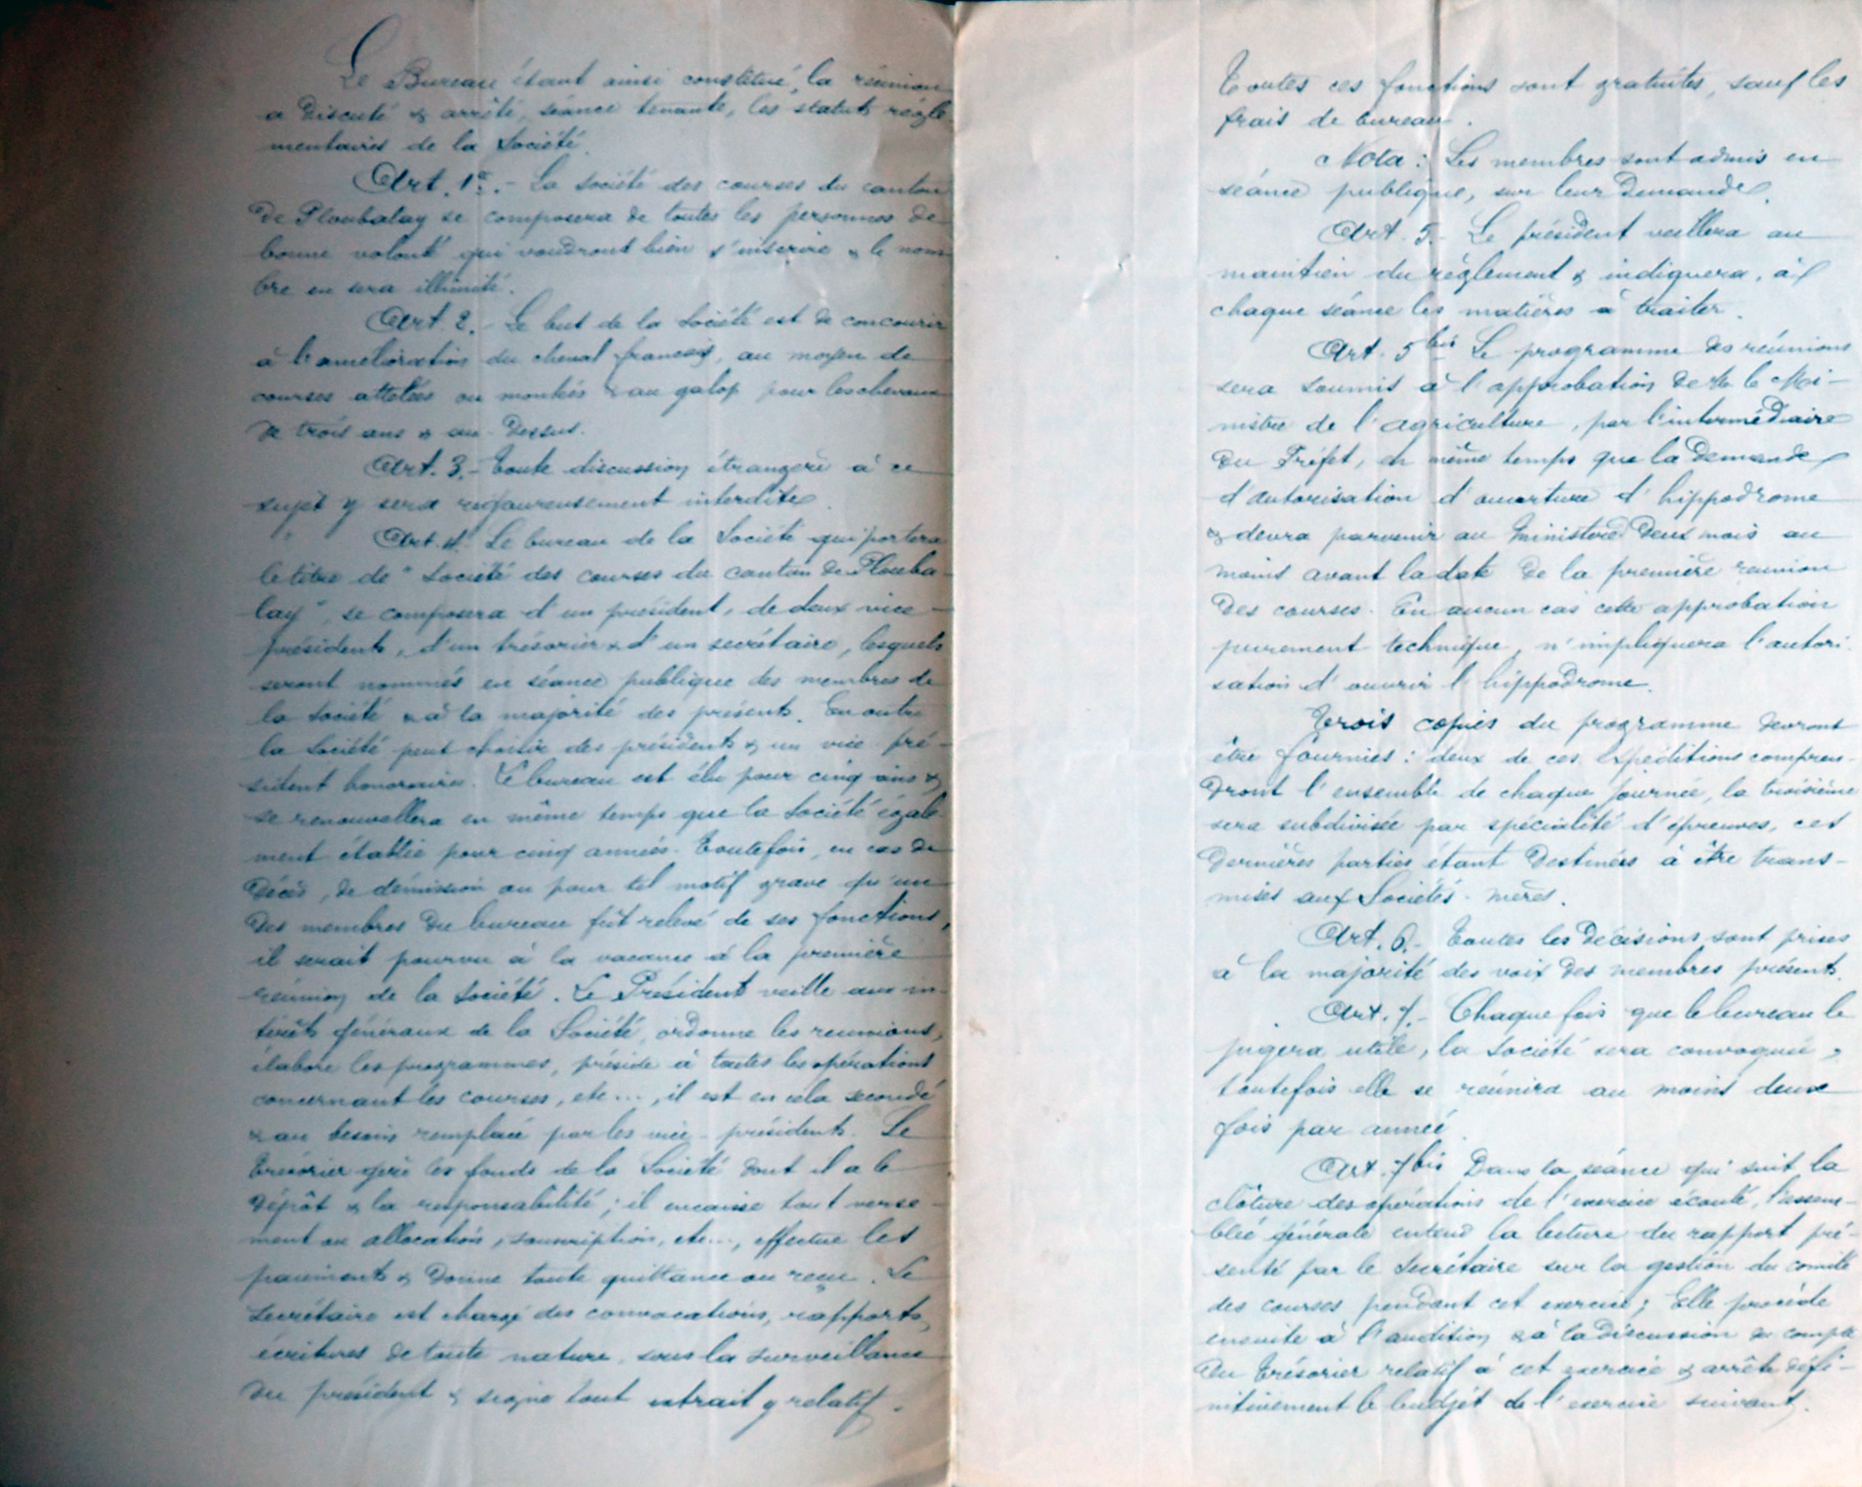 Le Bureau étant ainsi constitué, la réunion
a discuté & arrêté, séance tenante, les statuts régle
mentaires de la Société.
Art. 1er. - La Société des courses du canton
de Ploubalay se composera de toutes les personnes de
bonne volonté qui voudront bien s'inscrire & le nom-
bre en sera illimité.
Art. 2. - Le but de la Société est de concourir
à l'amélioration du cheval français, au moyen de
courses attelées ou montées & au galop pour les chevaux
de trois ans & au-dessus.
Art. 3. - Toute discussion étrangère à ce
sujet y sera rigoureusement interdite.
Art. 4. Le bureau de la Société qui portera
le titre de "Société des courses du canton de Plouba-
lay", se composera d'un président, de deux vice-
présidents, d'un trésorier & d'un secrétaire, lesquels
seront nommés en séance publique des membres de
la Société & à la majorité des présents. En outre
la Société peut choisir des présidents & un vice-pré-
sident honoraires. Le bureau est élu pour cinq ans &
se renouvellera en même temps que la Société égale-
ment établie pour cinq années. Toutefois, en cas de
décès, de démission ou pour tel motif grave qu'un
des membres du bureau fût relevé de ses fonctions,
il serait pourvu à la vacance à la première
réunion de la Société. Le Président veille aux in-
térêts généraux de la Société, ordonne les reunions,
élabore les programmes, préside à toutes les opérations
concernant les courses, etc..., il est en cela secondé
& au besoin remplacé par les vice-présidents. Le
trésorier gère les fonds de la Société dont il a le
dépôt & la responsabilité; il encaisse tout verse-
ment ou allocation, souscription, etc..., effectue les
paiements & donne toute quittance ou reçu. Le
Secrétaire est chargé des convocations, rapports,
écritures de toute nature, sous la surveillance
du président & signe tout extrait y relatif.
Toutes ces fonctions sont gratuites, sauf les
frais de bureau.
Nota: Les membres sont admis en
séance publique, sur leur demande.
Art. 5. - Le président veillera au
maintien du règlement & indiquera, à
chaque séance les matières à traiter.
Art. 5 bis Le programme des réunions
sera soumis à l'approbation de Mr le Mi-
nistre de l'agriculture, par l'intermédiaire
du Préfet, en même temps que la demande
d'autorisation d'ouverture d'hippodrome
& devra parvenir au Ministère deux mois au
moins avant la date de la première reunion
des courses. En aucun cas cette approbation
purement technique, n'impliquera l'autori-
sation d'ouvrir l'hippodrome.
Trois copies du programme devront
être fournies: deux de ces expéditions compren-
dront l'ensemble de chaque journée, la troisième
sera subdivisée par spécialité d'épreuves, ces
dernières parties étant destinées à être trans-
mises aux Sociétés-mères.
Art. 6. - Toutes les décisions sont prises
à la majorité des voix des membres présents.
Art. 7. - Chaque fois que le bureau le
jugera utile, la Société sera convoquée,
toutefois elle se réunira au moins deux
fois par année.
Art. 7 bis Dans la séance qui suit la
clôture des opérations de l'exercice écoulé, l'assem-
blée générale entend la lecture du rapport pré-
senté par le Secrétaire sur la gestion du comité
des courses pendant cet exercice; Elle procède
ensuite à l'audition & à la discussion du compte
du trésorier relatif à cet exercice & arrête défi-
nitivement le budget de l'exercice suivant.